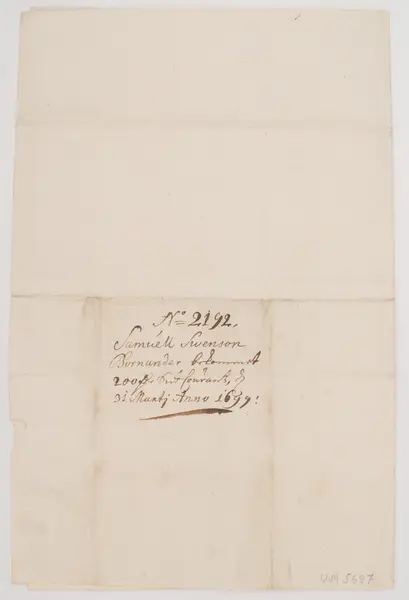 No 2192.
Samuell Swenson
Bornander bekommit
200
31 Martj Anno 1699:
UM 5687